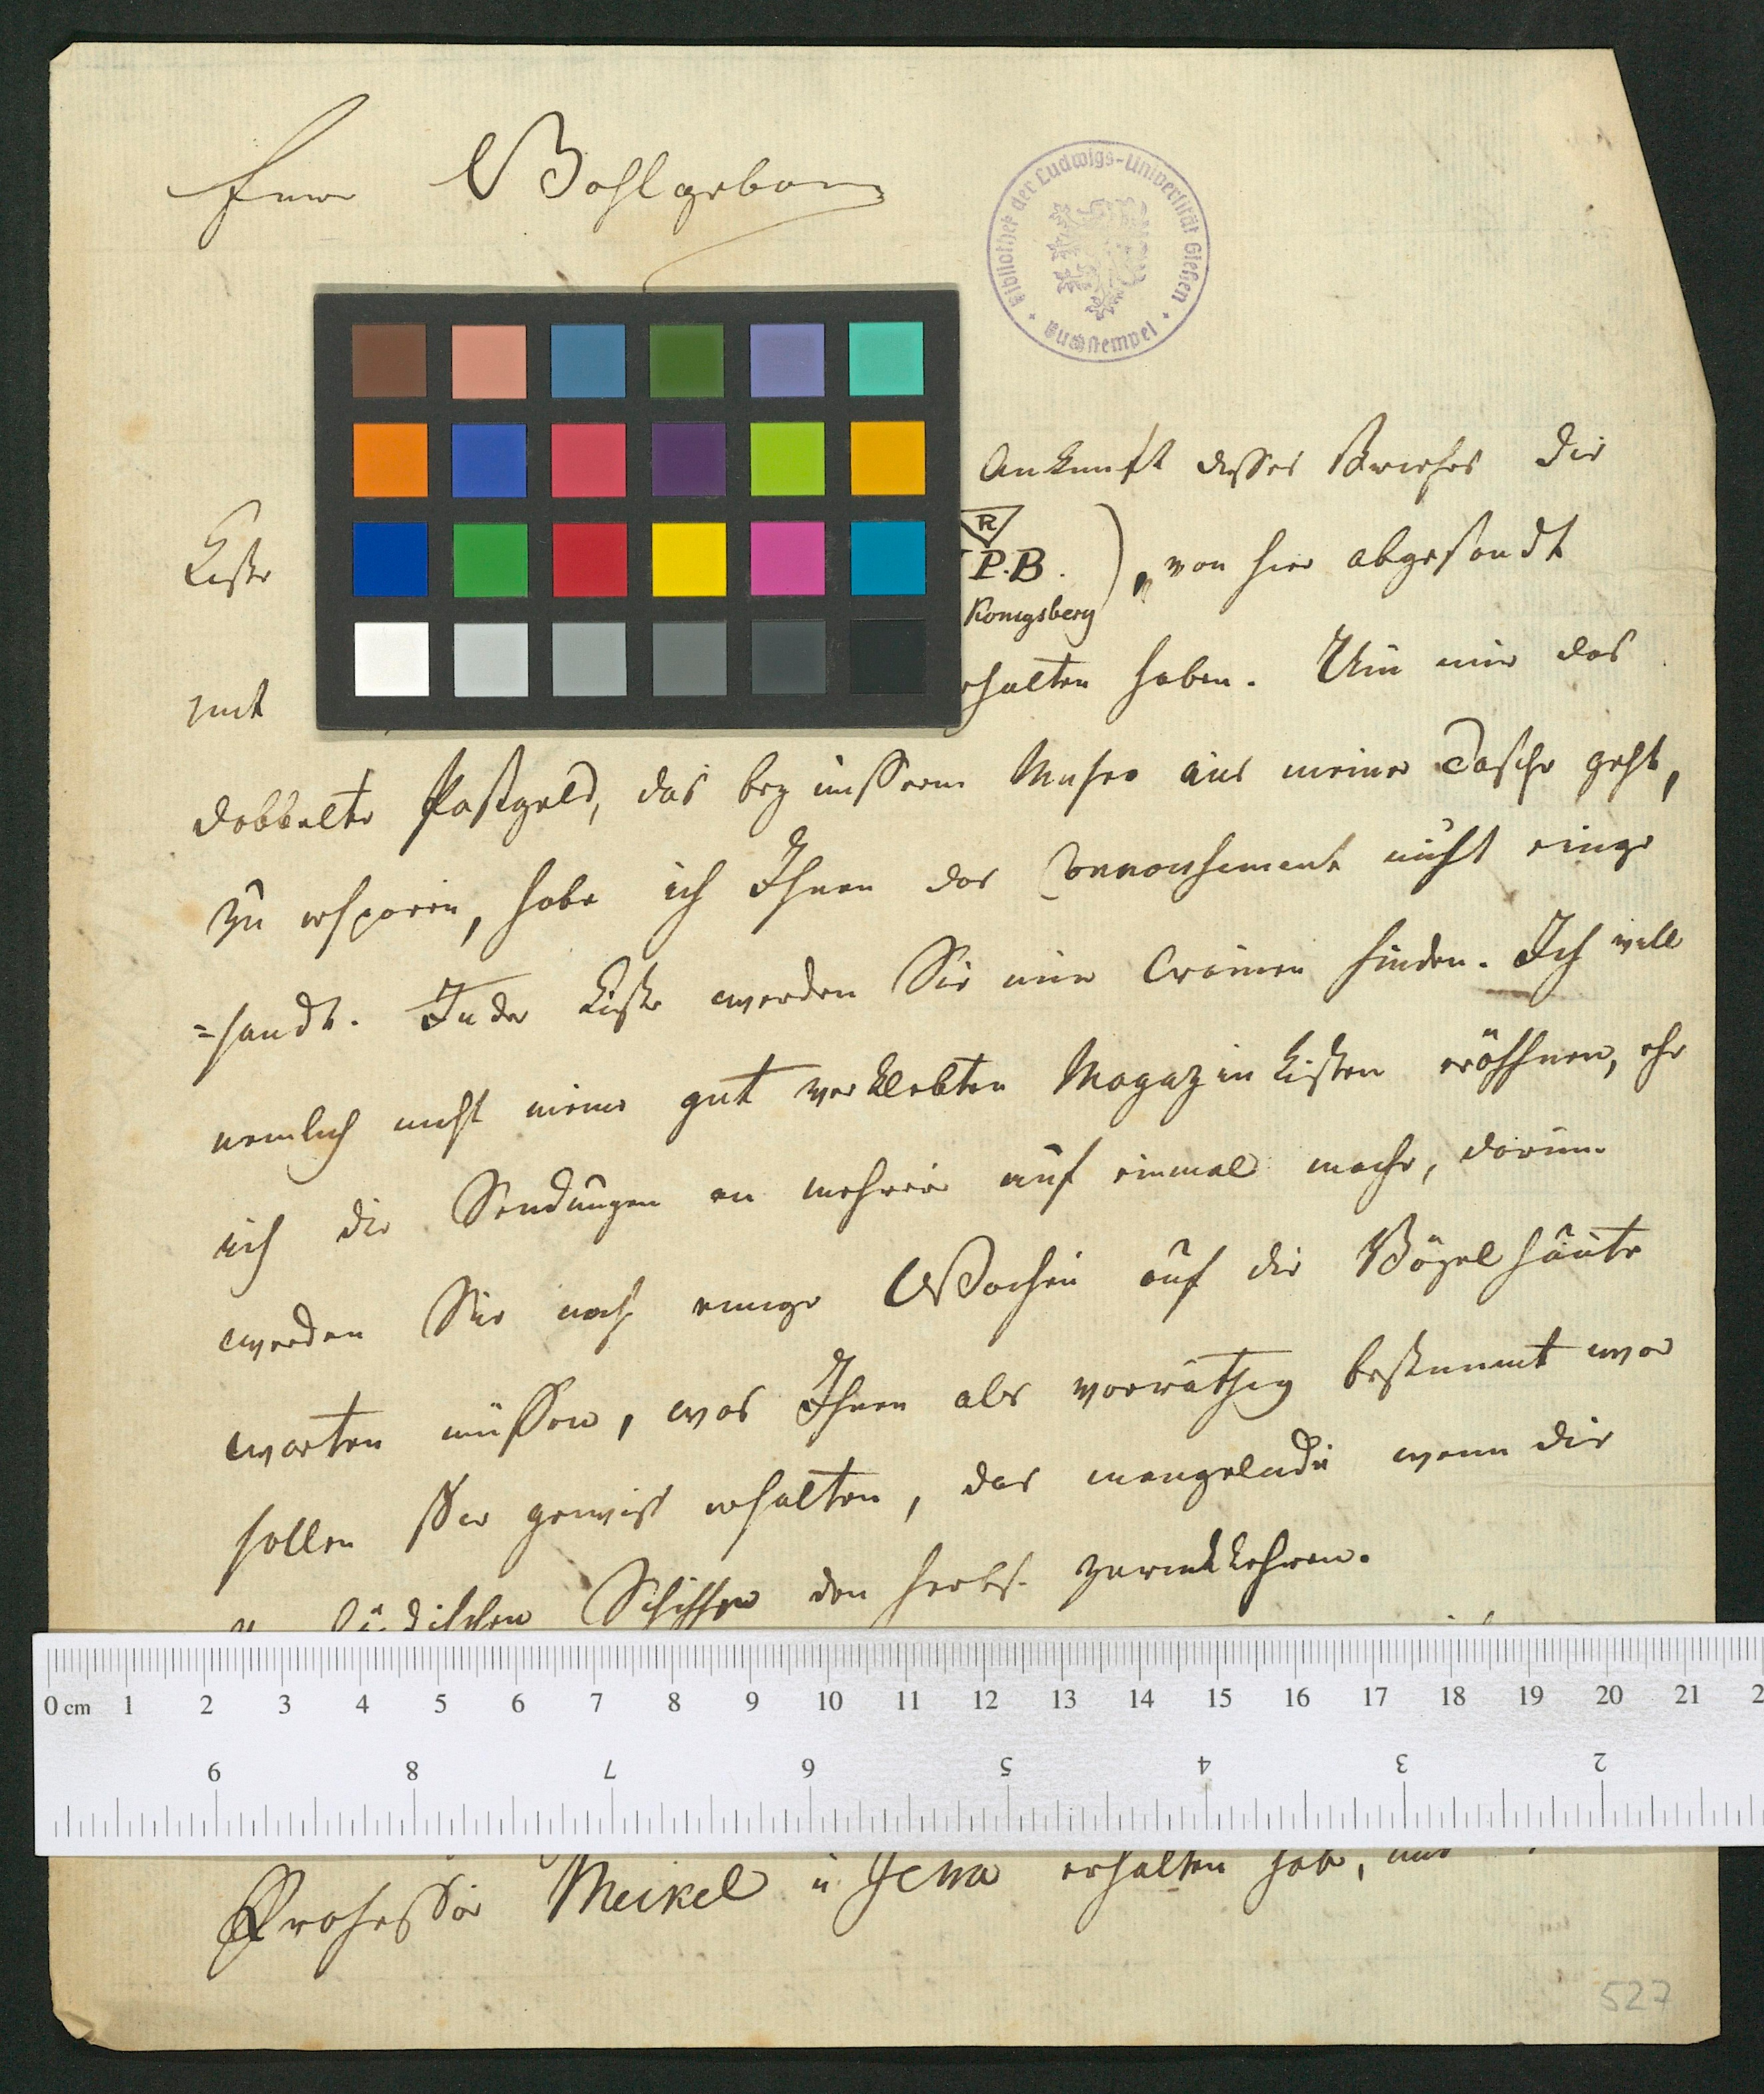 Euer Wohlgeborn
Bibliothek der Ludwigs-Universität Gießen
Buchstempel
Ankunft dieses Briefes die
Kiste
R
P.B.
Königsberg
), von hier abgesandt
und
erhalten haben. Um mir das
dobbelte Postgeld, das bey unsserm Museo aus meiner Tasche geht,
zu ersparen, habe ich Ihnen das Connonsement nicht einge
=sandt. In der Kiste werden Sie nur Cranien finden. Ich will
nemlich nicht meine gut verklebten Magazin Kisten eröffnen, ehe
ich die Sendungen an mehrere auf einmal mache, darum
werden Sie noch einige Wochen auf die Vögelhäute
warten müssen, was Ihnen als vorräthig bestimmt war
sollen Sie gewiss erhalten, das mangelnde wenn die
Schiffe den Herbst zurückkehren.
0 cm 1 2 3 4 5 6 7 8 9 10 11 12 13 14 15 16 17 18 19 20 21 2
9 8 7 6 5 4 3 2
Professor Meckel u Jena erhalten habe,
527